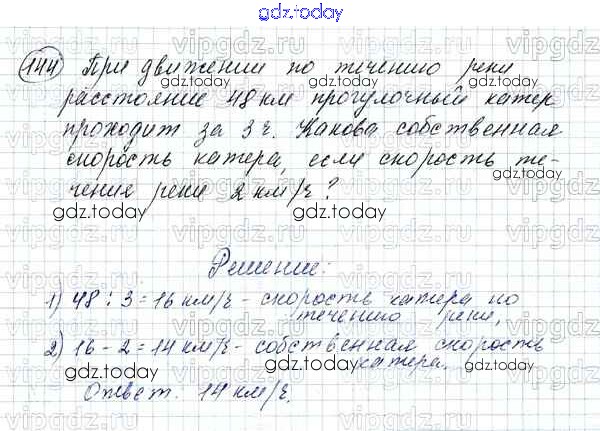 gdz.today
144 При движении по течению реки
расстояние 48 км прогулочный катер
проходит за 3 ч. Какова собственная
скорость катера, если скорость те-
чения реки 2 км/ч?
Решение:
1) 48 : 3 = 16 км/ч - скорость катера по
течению реки,
2) 16 - 2 = 14 км/ч - собственная скорость
катера.
Ответ. 14 км/ч.